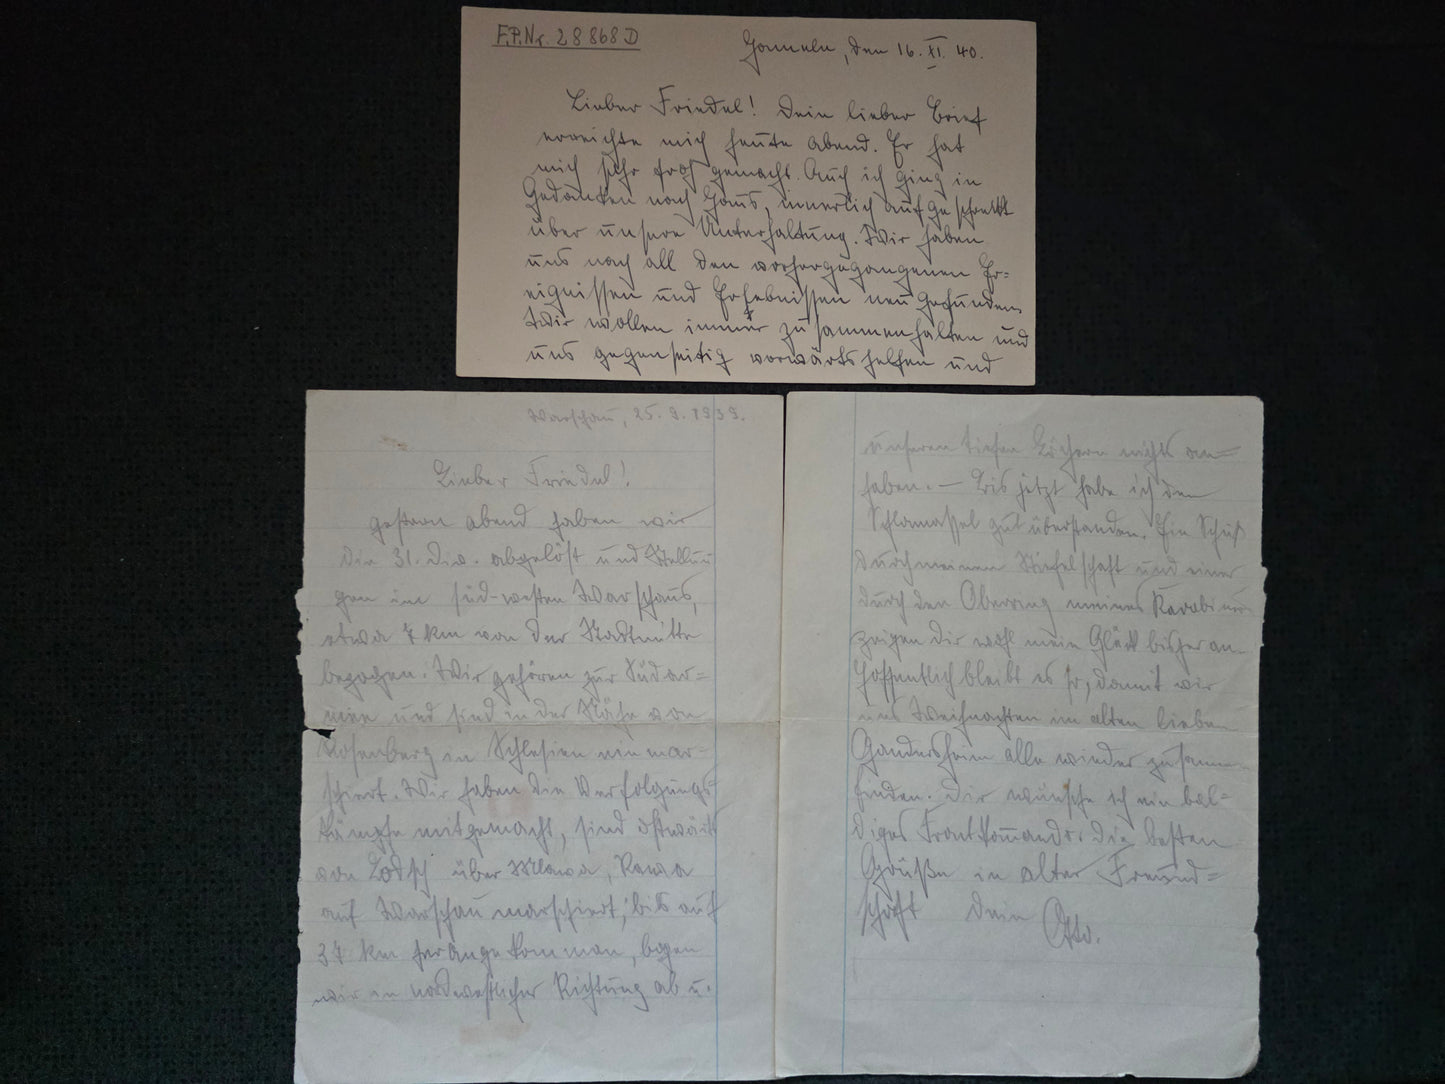 F.P.Nr. 28868 D
Gommeln, den 16. XI. 40.
Lieber Friedel! Dein lieber Brief
erreichte mich heute abend. Er hat
mich sehr froh gemacht. Auch ich ging in
Gedanken nach Haus, innerlich aufgeschreckt
über unsere Unterhaltung. Wir haben
uns nach all den vorhergegangenen Er=
eignissen und Erlebnissen neu gefunden.
Wir wollen immer zusammenhalten und
uns gegenseitig vorwärts helfen und
Warschau, 25. 9. 1939.
Lieber Friedel!
gestern abend haben wir
die 31. Div. abgelöst und Stellun
gen im süd-westen Warschaus,
etwa 7 km von der Stadtmitte
bezogen. Wir gehören zur Südar=
mee und sind in der Nähe von
Rosenberg in Schlesien einmar=
schiert. Wir haben die Verfolgungs=
kämpfe mitgemacht, sind ostwärts
von Lodsch über Mlawa, Rawa
auf Warschau marschiert, bis auf
37 km herangekommen, bogen
wir in nordwestlicher Richtung ab u.
unseren tiefen Löchern nichts an=
haben. — Bis jetzt habe ich den
Schlamassel gut überstanden. Ein Schuß
durch meinen Stiefelschaft und einer
durch den Oberring meines Karabiners
zeigen dir wohl mein Glück bisher an.
Hoffentlich bleibt es so, damit wir
uns Weihnachten im alten lieben
Gandersheim alle wieder zusammen
finden. Dir wünsche ich ein bal=
diges Frontkommando. Die besten
Grüße in alter Freund=
schaft Dein Otto.